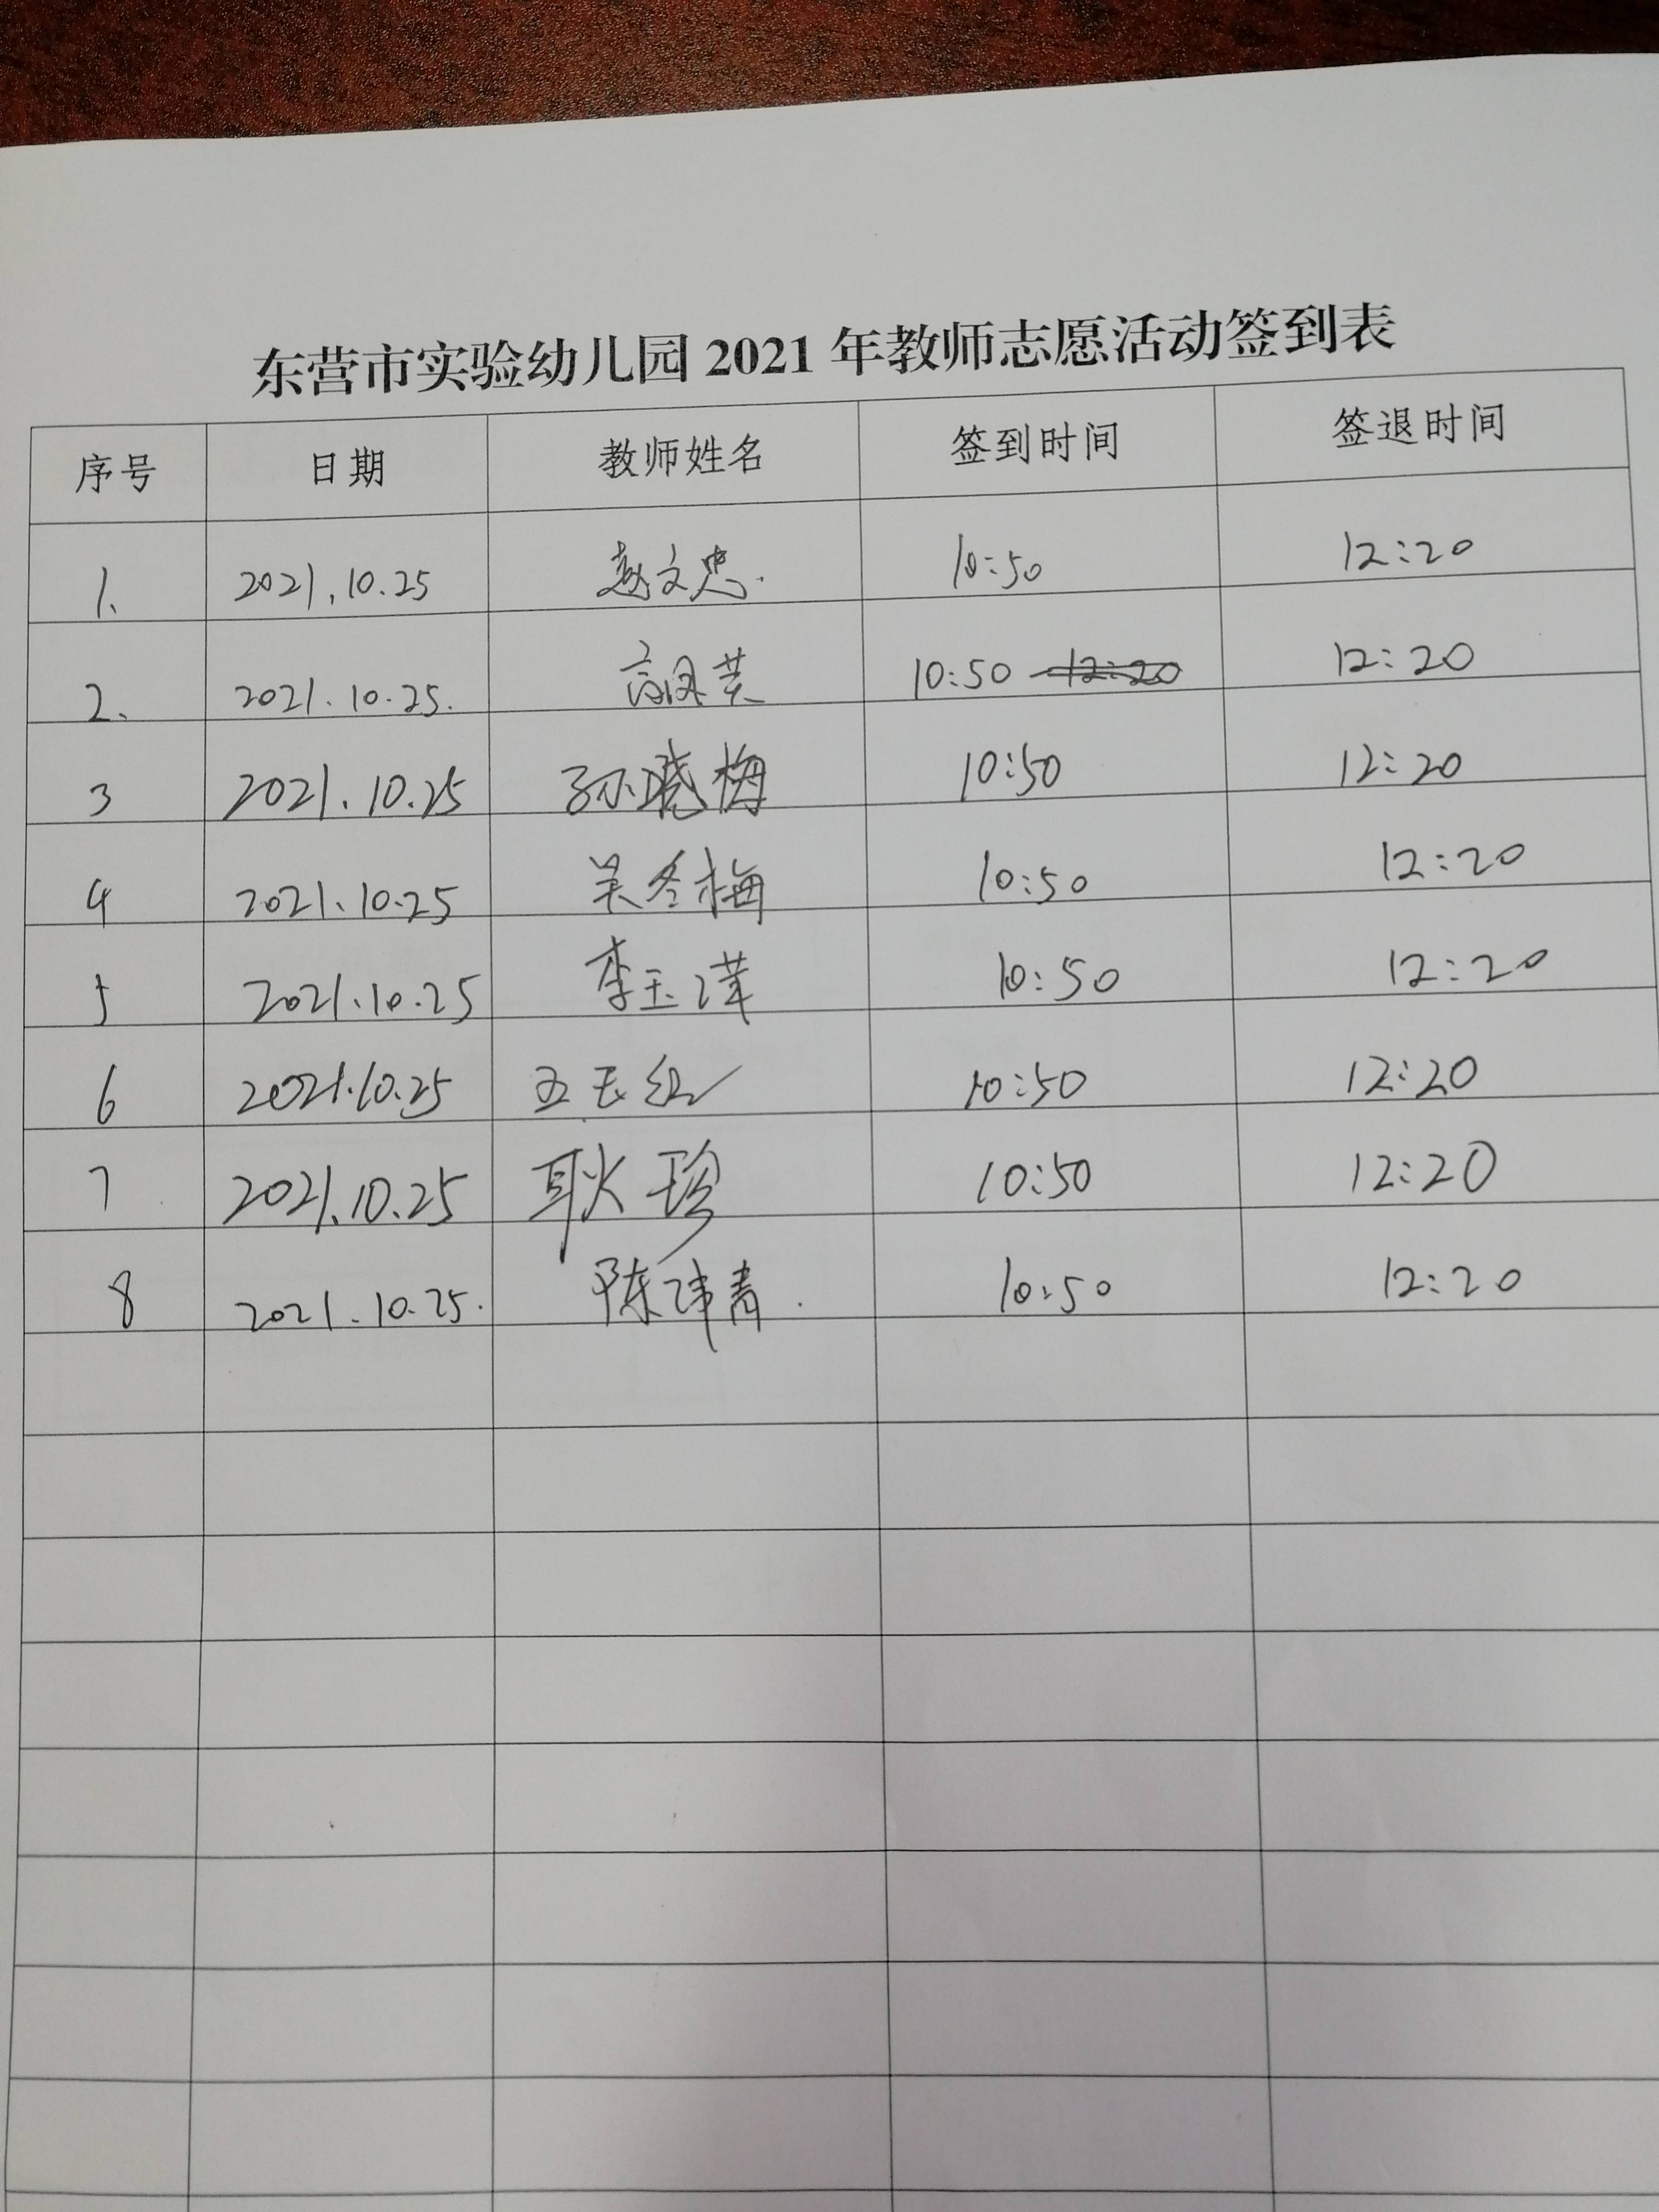 东营市实验幼儿园 2021 年教师志愿活动签到表
序号 日期 教师姓名 签到时间 签退时间
1、 2021.10.25 赵文忠. 10:50 12:20
2、 2021.10.25. 高凤英 10:50 12:20 12:20
3 2021.10.25 孙晓梅 10:50 12:20
4 2021.10.25 吴冬梅 10:50 12:20
5 2021.10.25 李玉萍 10:50 12:20
6 2021.10.25 10:50 12:20
7 2021.10.25 耿珍 10:50 12:20
8 2021.10.25. 陈玮青. 10:50 12:20